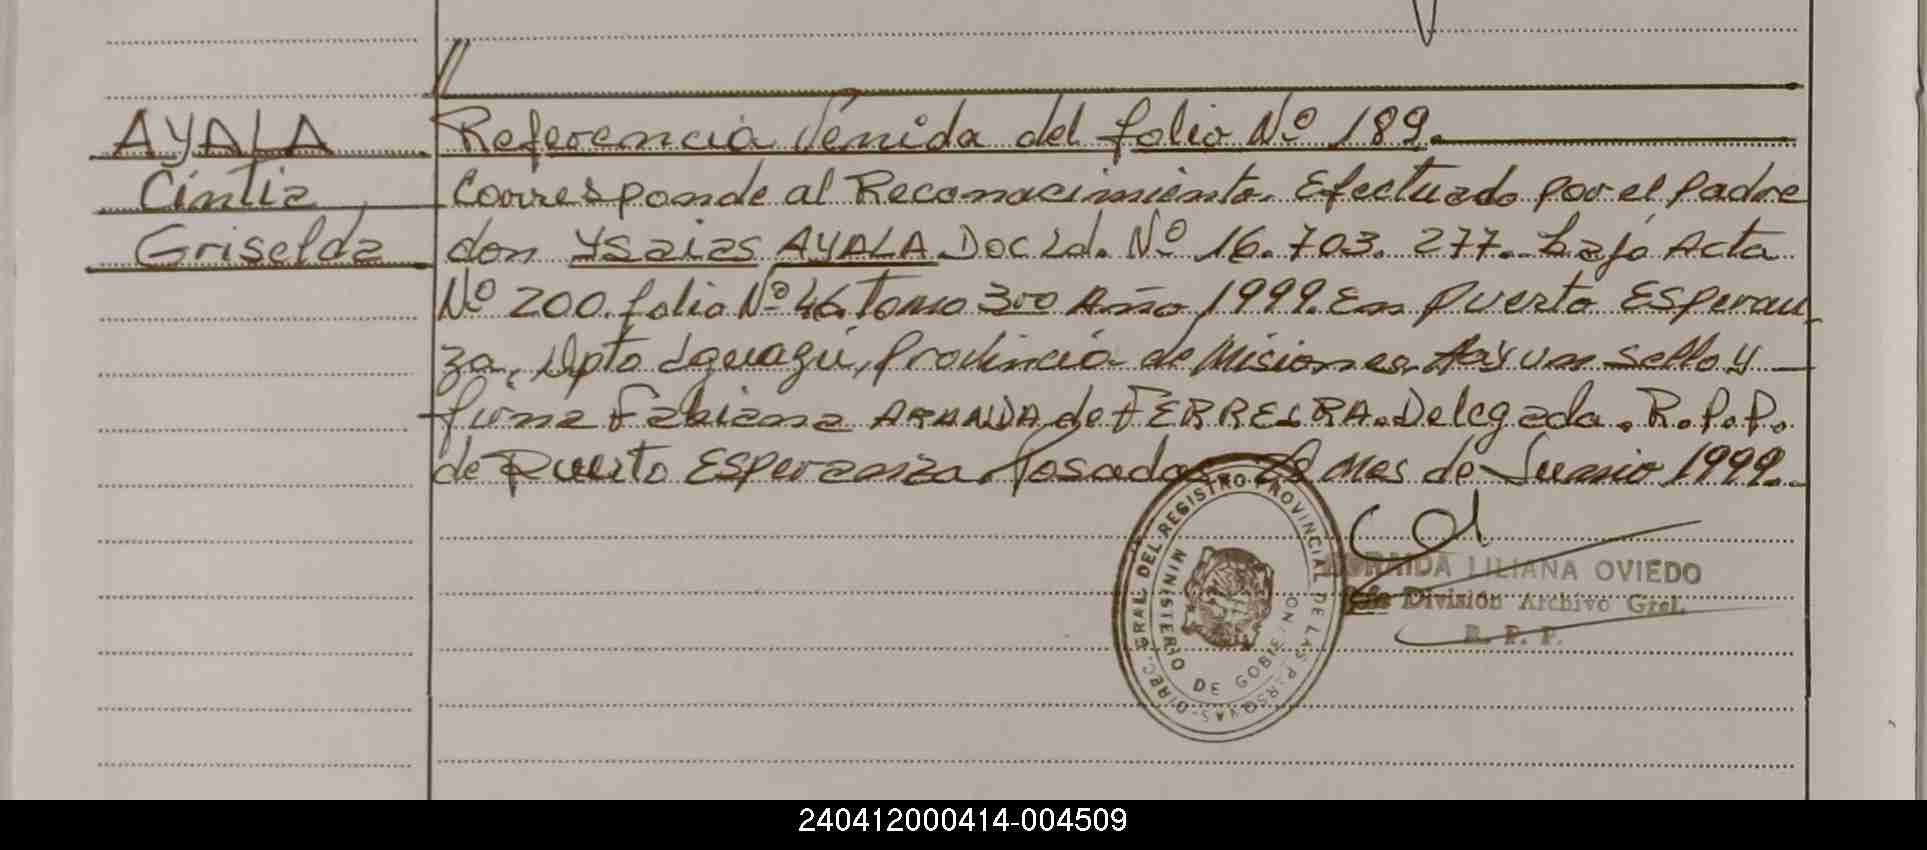 AYALA
Cintia
Griselda
Referencia Venida del folio Nº 189.
Corresponde al Reconocimiento. Efectuado por el padre
don Ysaias AYALA. Doc Id. Nº 16.703.277. bajo Acta
Nº 200. folio Nº 46. Tomo 3ºº Año 1999. En puerto Esperan
za, Dpto Iguazú, Provincia de Misiones. Hay un sello y
firma Fabiana ARANDA de FERREIRA. Delegada. R.P.P.
de Puerto Esperanza. Posadas, mes de Junio 1999.
DIREC. GRAL. DEL REGISTRO PROVINCIAL DE LAS PERSONAS
MINISTERIO DE GOBIERNO
LILIANA OVIEDO
División Archivo Gral.
R. P. P.
240412000414-004509